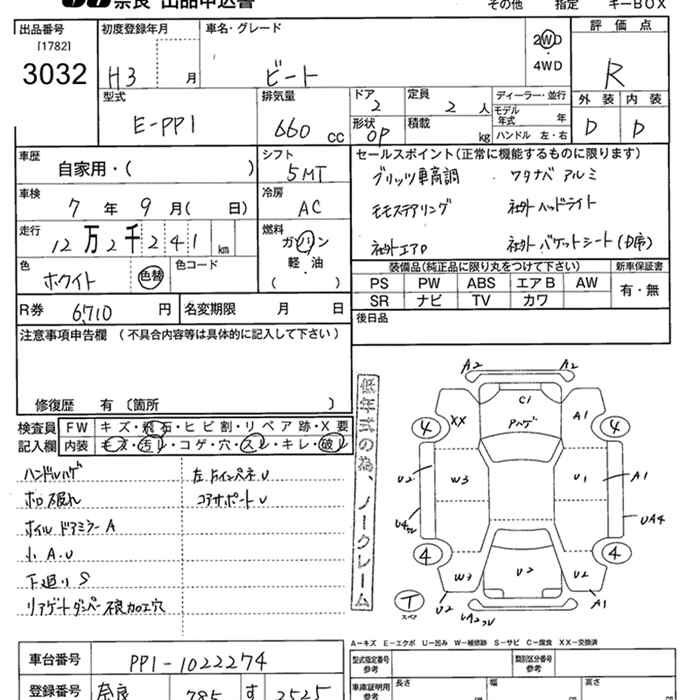 奈良 出品申込書 その他 指定 キーBOX
出品番号 初度登録年月 車名・グレード 評価点
[1782]
3032 H3 月 ビート 2WD・4WD R
型式 排気量 ドア 定員 ディーラー・並行 外装 内装
E-PP1 660 cc 2 2 人 モデル年式 年 D D
形状 OP 積載 kg ハンドル 左・右
車歴 自家用・( ) シフト 5MT セールスポイント(正常に機能するものに限ります)
ブリッツ車高調 ワタナベ アルミ
車検 7 年 9 月( 日) 冷房 AC
モモステアリング 社外ヘッドライト
走行 12万2千241 km 燃料 ガソリン 軽・油 ( )
社外エアロ 社外バケットシート(D席)
色 ホワイト 色替 色コード
装備品(純正品に限り丸をつけて下さい) 新車保証書
PS PW ABS エアB AW 有・無
SR ナビ TV カワ
R券 6,710 円 名変期限 月 日
後日品
注意事項申告欄 (不具合内容等は具体的に記入して下さい)
修復歴 有 〔箇所 〕
検査員 FW キズ・飛石・ヒビ割・リペア跡・X要
記入欄 内装 キズ・汚レ・コゲ・穴・スレ・キレ・破レ
ハンドルハゲ 左ドアインパネU
ホロ破れ コアサポートU
ホイルドアミラーA
小A.U
下廻りS
リアゲートダンパー不良加工穴
低年式の為、ノークレーム
A2 A2
C1
XX Pハゲ A1
4 4
U2 W3 U1 A1
UA4
4 4
W3 U2 U2
U2 A1
T
スペア
A-キズ E-エクボ U-凹み W-補修跡 S-サビ C-腐食 XX-交換済
車台番号 PP1-1022274
型式指定番号 参考 類別区分番号 参考
登録番号 奈良 785 す 2525
車庫証明用 参考 長さ 幅 高さ